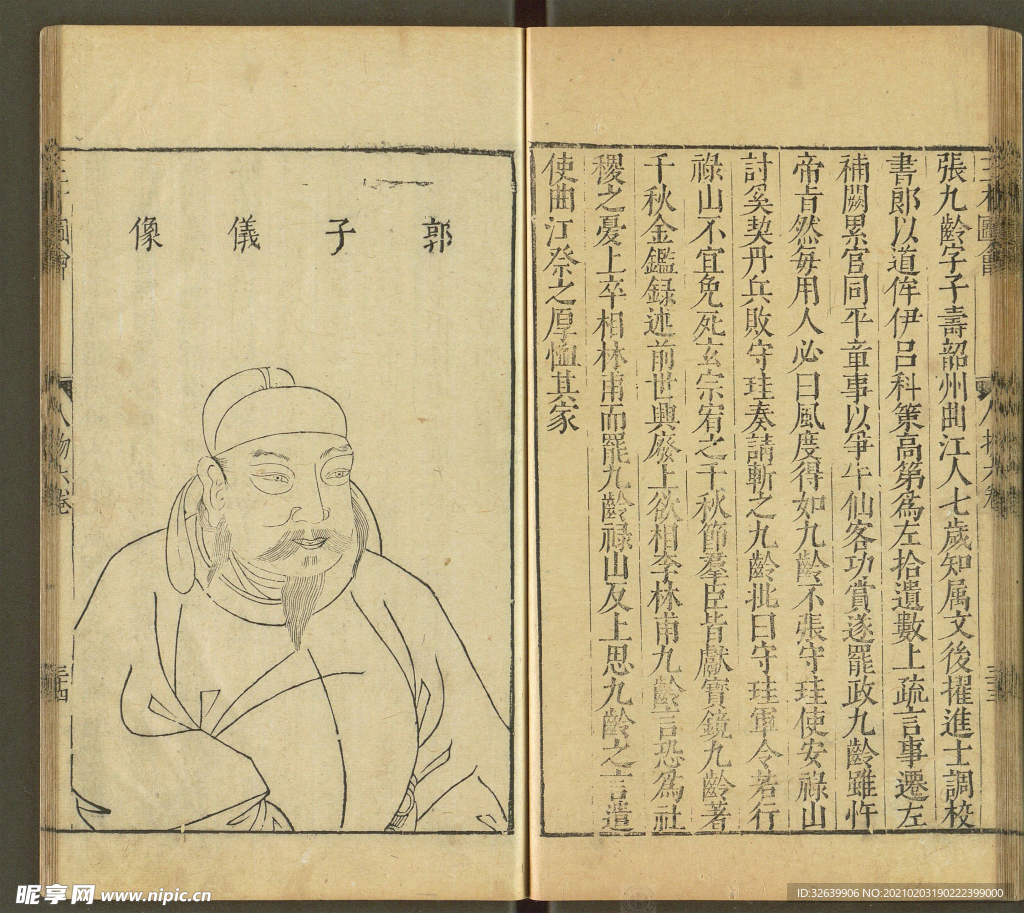 張九齡字子壽韶州曲江人七歲知属文後擢進士調校
書郎以道侔伊吕科策高第爲左拾遺數上疏言事遷左
補闕累官同平章事以爭牛仙客功賞遂罷政九齡雖忤
帝旨然每用人必曰風度得如九齡不張守珪使安祿山
討奚契丹兵敗守珪奏請斬之九齡批曰守珪軍令若行
祿山不宜免死玄宗宥之千秋節羣臣皆獻寶鏡九齡著
千秋金鑑録述前世興廢上欲相李林甫九齡言恐爲社
稷之憂上卒相林甫而罷九齡祿山反上思九齡之言遣
使曲江祭之厚恤其家
郭子儀像
人物六卷
三十四
昵享网 www.nipic.cn
ID:32639906 NO:20210203190222399000